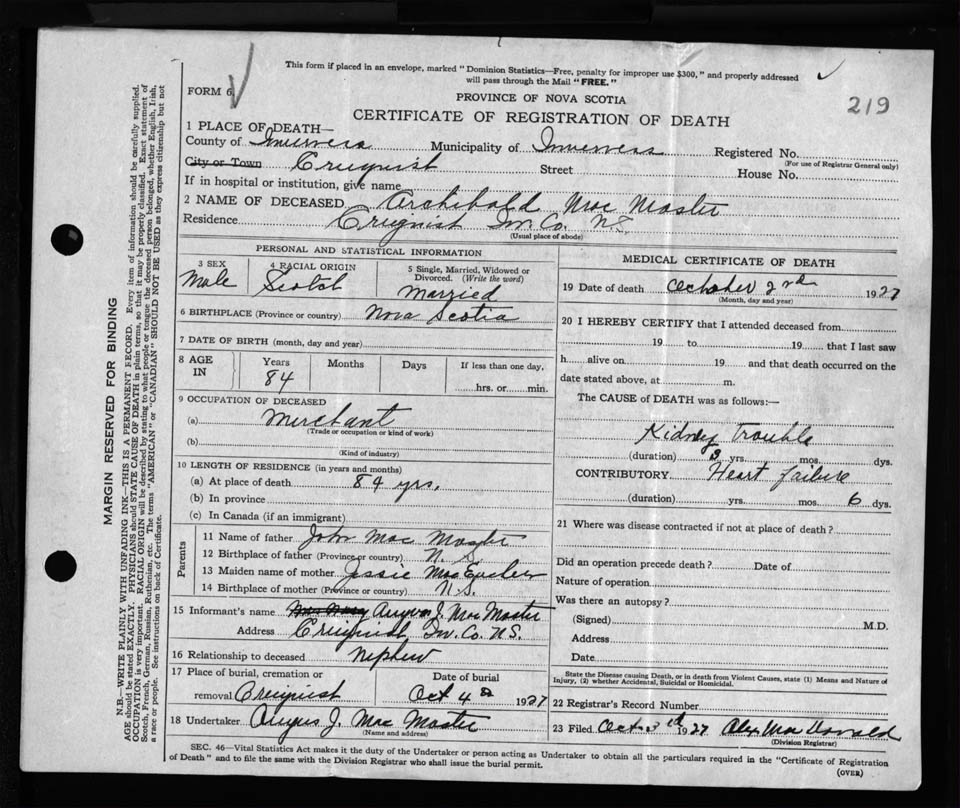 This form if placed in an envelope, marked "Dominion Statistics—Free, penalty for improper use $300," and properly addressed
will pass through the Mail "FREE."
FORM 6
219
PROVINCE OF NOVA SCOTIA
CERTIFICATE OF REGISTRATION OF DEATH
1 PLACE OF DEATH—
County of Inverness Municipality of Inverness Registered No.
(For use of Registrar General only)
City or Town Creignish Street House No.
If in hospital or institution, give name
2 NAME OF DECEASED Archibald Mac Master
Residence Creignish Inv. Co. N.S.
(Usual place of abode)
PERSONAL AND STATISTICAL INFORMATION
3 SEX Male
4 RACIAL ORIGIN Scotch
5 Single, Married, Widowed or Divorced. (Write the word) Married
6 BIRTHPLACE (Province or country) Nova Scotia
7 DATE OF BIRTH (month, day and year)
8 AGE IN Years 84 Months Days If less than one day, hrs. or min.
9 OCCUPATION OF DECEASED
(a) Merchant
(Trade or occupation or kind of work)
(b)
(Kind of industry)
10 LENGTH OF RESIDENCE (in years and months)
(a) At place of death 84 yrs.
(b) In province
(c) In Canada (if an immigrant)
Parents
11 Name of father John Mac Master
12 Birthplace of father (Province or country) N.S.
13 Maiden name of mother Jessie MacEachen
14 Birthplace of mother (Province or country) N.S.
15 Informant's name Angus J. Mac Master
Address Creignish, Inv. Co. N.S.
16 Relationship to deceased Nephew
17 Place of burial, cremation or removal Creignish Date of burial Oct 4th 1927
18 Undertaker Angus J. Mac Master
(Name and address)
MEDICAL CERTIFICATE OF DEATH
19 Date of death October 2nd 1927
(Month, day and year)
20 I HEREBY CERTIFY that I attended deceased from
19 to 19 that I last saw
h alive on 19 and that death occurred on the
date stated above, at m.
The CAUSE of DEATH was as follows:—
Kidney Trouble
(duration) 3 yrs. mos. dys.
CONTRIBUTORY Heart failure
(duration) yrs. mos. 6 dys.
21 Where was disease contracted if not at place of death?
Did an operation precede death? Date of
Nature of operation
Was there an autopsy?
(Signed) M.D.
Address
Date
State the Disease causing Death, or in death from Violent Causes, state (1) Means and Nature of
Injury, (2) whether Accidental, Suicidal or Homicidal.
22 Registrar's Record Number
23 Filed Oct. 3rd 1927 Alex Mac Donald
(Division Registrar)
SEC. 46—Vital Statistics Act makes it the duty of the Undertaker or person acting as Undertaker to obtain all the particulars required in the "Certificate of Registration
of Death" and to file the same with the Division Registrar who shall issue the burial permit.
(OVER)
MARGIN RESERVED FOR BINDING
N.B.—WRITE PLAINLY WITH UNFADING INK—THIS IS A PERMANENT RECORD. Every item of information should be carefully supplied.
AGE should be stated EXACTLY. PHYSICIANS should STATE CAUSE OF DEATH in plain terms, so that it may be properly classified. Exact statement of
OCCUPATION is very important. RACIAL ORIGIN will be described by stating to what people or tongue the deceased person belonged, whether English, Irish,
Scotch, French, German, Russian, Ruthenian, etc. The terms "AMERICAN" or "CANADIAN" SHOULD NOT BE USED as they express citizenship but not
a race or people. See instructions on back of Certificate.